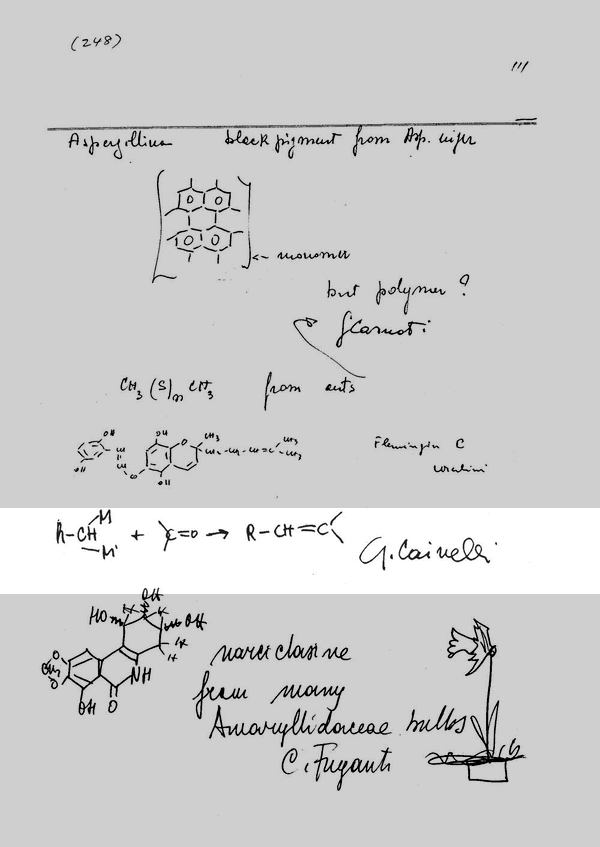 (248)
111
Aspergillina black pigment from Asp. niger
← monomer
but polymer ?
CH3 (S)n CH3 from ants
Flemingin C
R-CH M M' + C=O → R-CH=C
G. Cainelli
HO OH OH H H H H
O CH2 O OH O NH
narciclasine
from many
Amaryllidaceae bulbs
C. Fuganti